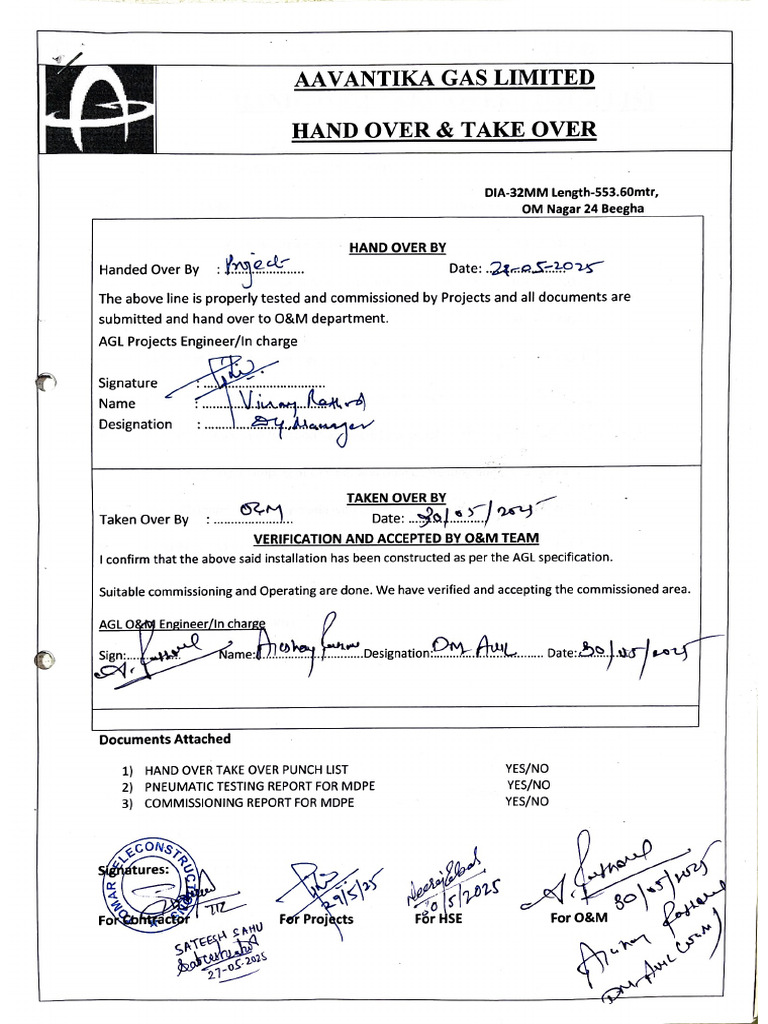 AAVANTIKA GAS LIMITED
HAND OVER & TAKE OVER
DIA-32MM Length-553.60mtr,
OM Nagar 24 Beegha
HAND OVER BY
Handed Over By : Project Date: 28-05-2025
The above line is properly tested and commissioned by Projects and all documents are
submitted and hand over to O&M department.
AGL Projects Engineer/In charge
Signature :
Name : Vinay Rathod
Designation : Dy. Manager
TAKEN OVER BY
Taken Over By : O&M Date: 30/05/2025
VERIFICATION AND ACCEPTED BY O&M TEAM
I confirm that the above said installation has been constructed as per the AGL specification.
Suitable commissioning and Operating are done. We have verified and accepting the commissioned area.
AGL O&M Engineer/In charge
Sign: Name: Designation: DM Date: 30/05/2025
Documents Attached
1) HAND OVER TAKE OVER PUNCH LIST YES/NO
2) PNEUMATIC TESTING REPORT FOR MDPE YES/NO
3) COMMISSIONING REPORT FOR MDPE YES/NO
Signatures:
29/5/25
30/5/2025
30/05/2025
For Contractor For Projects For HSE For O&M
SATEESH SAHU
27-05-2025